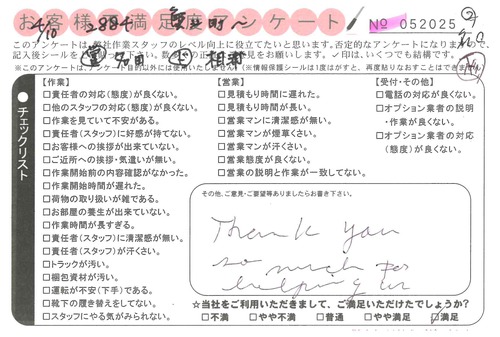 お客様満足度アンケート
№ 052025
4/10 2884
このアンケートは、弊社作業スタッフのレベル向上に役立てたいと思います。否定的なアンケートになりますが、
記入後シールを
いくつでも結構です。
※このアンケートは、アンケート目的以外には使用いたしません
(※情報保護シールは1度はがすと、再度貼りなおすことはできません)
チェックリスト
【作業】
□責任者の対応(態度)が良くない。
□他のスタッフの対応(態度)が良くない。
□作業を見ていて不安がある。
□責任者(スタッフ)に好感が持てない。
□お客様への挨拶が出来ていない。
□ご近所への挨拶・気遣いが無い。
□作業開始前の内容確認がなかった。
□作業開始時間が遅れた。
□荷物の取り扱いが雑である。
□お部屋の養生が出来ていない。
□作業時間が長すぎる。
□責任者(スタッフ)に清潔感が無い。
□責任者(スタッフ)が汗くさい。
□トラックが汚い。
□梱包資材が汚い。
□運転が不安(下手)である。
□靴下の履き替えをしてない。
□スタッフにやる気がみられない。
【営業】
□見積もり時間に遅れた。
□見積もり時間が長い。
□営業マンに清潔感が無い。
□営業マンが煙草くさい。
□営業マンが汗くさい。
□営業態度が良くない。
□営業の説明と作業が一致してない。
【受付・その他】
□電話の対応が良くない。
□オプション業者の説明
・作業が良くない。
□オプション業者の対応
(態度)が良くない。
その他、ご意見・ご要望等ありましたらお書き下さい。
Thank you
so much for
helping us
☆当社をご利用いただきまして、ご満足いただけたでしょうか?
□不満 □やや不満 □普通 □やや満足 ☑満足